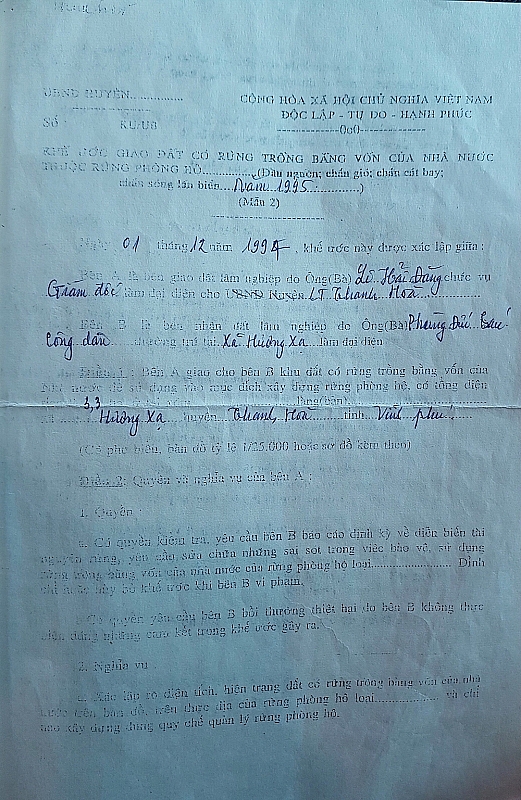 UBND HUYỆN...............
CỘNG HÒA XÃ HỘI CHỦ NGHĨA VIỆT NAM
ĐỘC LẬP - TỰ DO - HẠNH PHÚC
--------------0c0---------------
Số : KU/UB
KHẾ ƯỚC GIAO ĐẤT CÓ RỪNG TRỒNG BẰNG VỐN CỦA NHÀ NƯỚC
THUỘC RỪNG PHÒNG HỘ...............(Đầu nguồn; chắn gió; chắn cát bay;
chắn sóng lấn biển...Năm 1995............)
(Mẫu 2)
Ngày 01 tháng 12 năm 1994, khế ước này được xác lập giữa :
Bên A là bên giao đất lâm nghiệp do Ông(Bà) Lê Hải Đăng chức vụ
Giám đốc làm đại diện cho UBND Huyện LT Thanh Hoà
Bên B là bên nhận đất lâm nghiệp do Ông(Bà) Phùng Đức
Công dân thường trú tại Xã Hương Xạ làm đại diện
Điều 1 : Bên A giao cho bên B khu đất có rừng trồng bằng vốn của
Nhà nước để sử dụng vào mục đích xây dựng rừng phòng hộ, có tổng diện
3,3
Hương Xạ huyện Thanh Hoà tỉnh Vĩnh phú
(Có phụ biểu, bản đồ tỷ lệ 1/25.000 hoặc sơ đồ kèm theo)
Điều 2: Quyền và nghĩa vụ của bên A :
1. Quyền :
a. Có quyền kiểm tra, yêu cầu bên B báo cáo định kỳ về diễn biến tài
nguyên rừng, yêu cầu sửa chữa những sai sót trong việc bảo vệ, sử dụng
rừng trồng bằng vốn của nhà nước của rừng phòng hộ loại..................... Đình
chỉ hoặc hủy bỏ khế ước khi bên B vi phạm.
Có quyền yêu cầu bên B bồi thường thiệt hại do bên B không thực
hiện đúng những cam kết trong khế ước gây ra.
2. Nghĩa vụ
a. Xác lập rõ diện tích, hiện trạng đất có rừng trồng bằng vốn của nhà
nước trên bản đồ, trên thực địa của rừng phòng hộ loại................ và chỉ
đạo xây dựng đúng quy chế quản lý rừng phòng hộ.